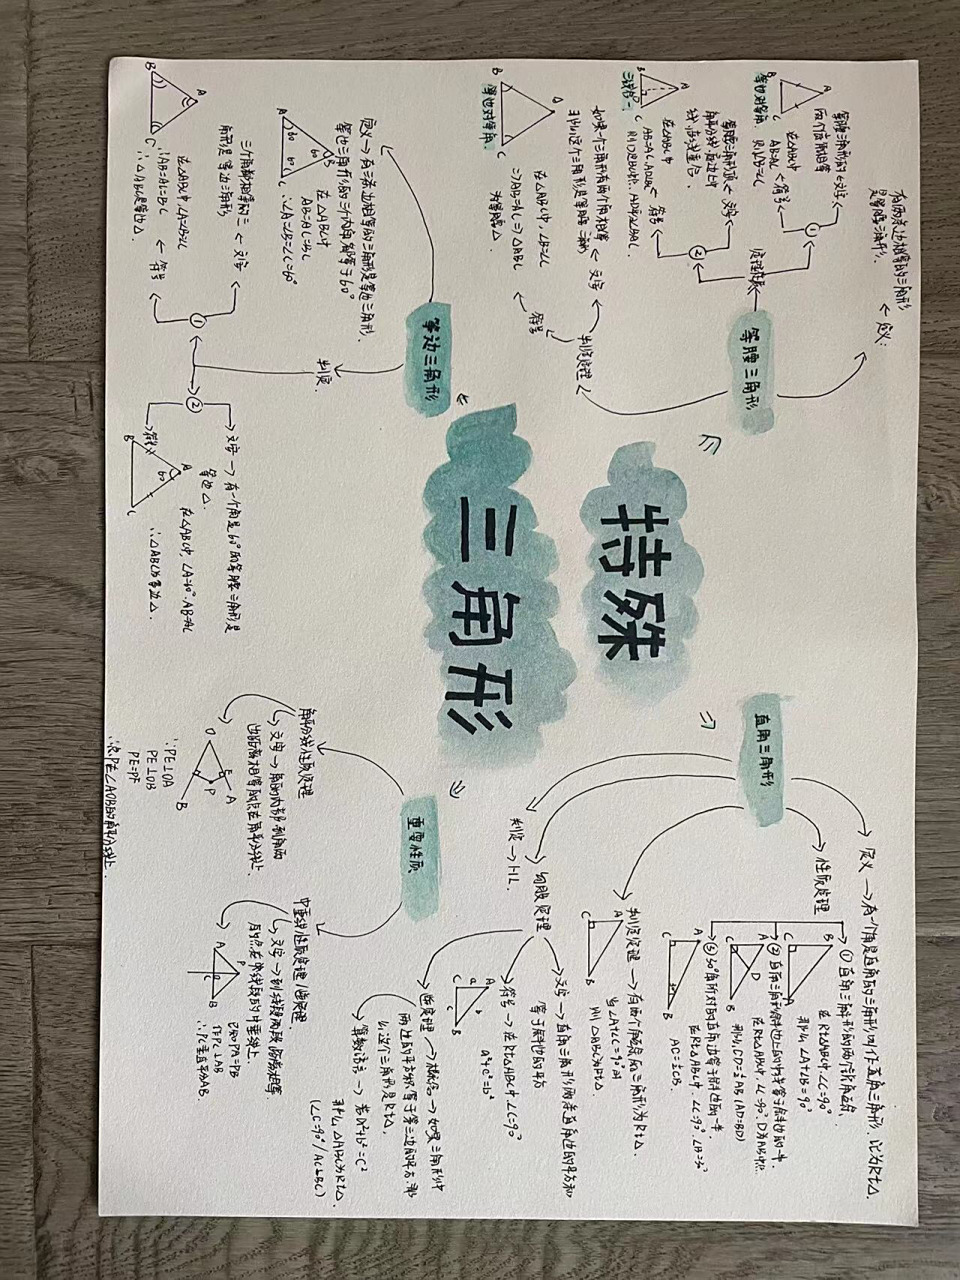 特殊
三角形
等腰三角形
定义:
有两条边相等的三角形
是等腰三角形.
性质定理
①
文字
等腰三角形的
两个底角相等
符号
在△ABC中
AB=AC
∴∠B=∠C
等边对等角
A
B
C
②
文字
等腰三角形顶
角平分线、底边上中
线、高线重合
符号
在△ABC中
AB=AC, AD⊥BC
三线合一
A
B
D
C
判定定理
文字
如果一个三角形有两个角相等
那么这个三角形是等腰三角形
符号
在△ABC中, ∠B=∠C
⇒AB=AC ⇒ △ABC
为等腰△.
等边对等角.
B
C
等边三角形
定义→有三条边相等的三角形是等边三角形.
等边三角形的三个内角都等于60°
在△ABC中
AB=AC=BC
∴∠A=∠B=∠C=60°
A
B
C
60
60
60
判定.
①
文字
三个角都相等的三
角形是等边三角形
符号
在△ABC中, ∠A=∠B=∠C
∴AB=AC=BC
∴△ABC是等边△.
A
B
C
②
文字→有一个角是60°的等腰三角形是
等边△.
符号
在△ABC中, ∠A=60°. AB=AC
∴△ABC为等边△.
A
60
B
C
直角三角形
定义→有一个角是直角的三角形叫作直角三角形. 记为Rt△.
性质定理
①直角三角形的两个锐角互余
在Rt△ABC中, ∠C=90°
那么∠A+∠B=90°
B
C
A
②直角三角形斜边上的中线等于斜边的一半.
在Rt△ABC中, ∠C=90°. D为AB中点
那么, CD=½AB (AD=BD)
A
D
C
B
③30°角所对的直角边等于斜边的一半.
在Rt△ABC中. ∠C=90°. ∠B=30°
A
C
30°
B
判定定理→有两个角互余的三角形为Rt△.
当∠A+∠C=90°时
则△ABC为Rt△
A
C
B
勾股定理
文字→直角三角形两条直角边的平方和
等于斜边的平方
符号→在Rt△ABC中. ∠C=90°
a²+c²=b²
A
a
b
C
c
B
逆定理→概念→如果三角形中
两边的平方和等于第三边的平方. 那
么这个三角形是Rt△.
算数语言→若a²+b²=c²
那么△ABC为Rt△
(∠C=90°/AC⊥BC)
判定→HL.
重要性质
角平分线性质定理
文字→角的内部到角两
边距离相等的点在角平分线上
O
E
P
A
B
∵PE⊥OA
PE⊥OB
PE=PF
∴点P在∠AOB的角平分线上.
中垂线性质定理/逆定理.
文字→到线段两段距离相等
的点在线段的中垂线上
P
A
C
B
已知PA=PB
作PC⊥AB
∴PC垂直平分AB.